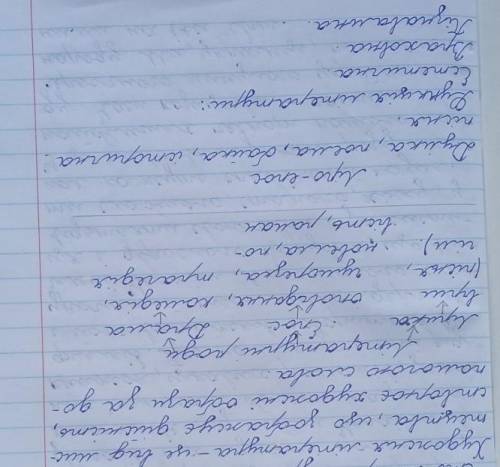 Художня література – це вид мис-
тецтва, що зображує дійсність,
створює художні образи за до-
помогою слова
Літературні роди
Лірика Епос Драма
вірш оповідання, комедія,
(пісня, гумореска, трагедія
гімн). новела, по-
вість, роман
Ліро-епос
Думка, поема, байка, історична
пісня.
Функція літератури:
Естетична
Виховна
Пізнавальна.